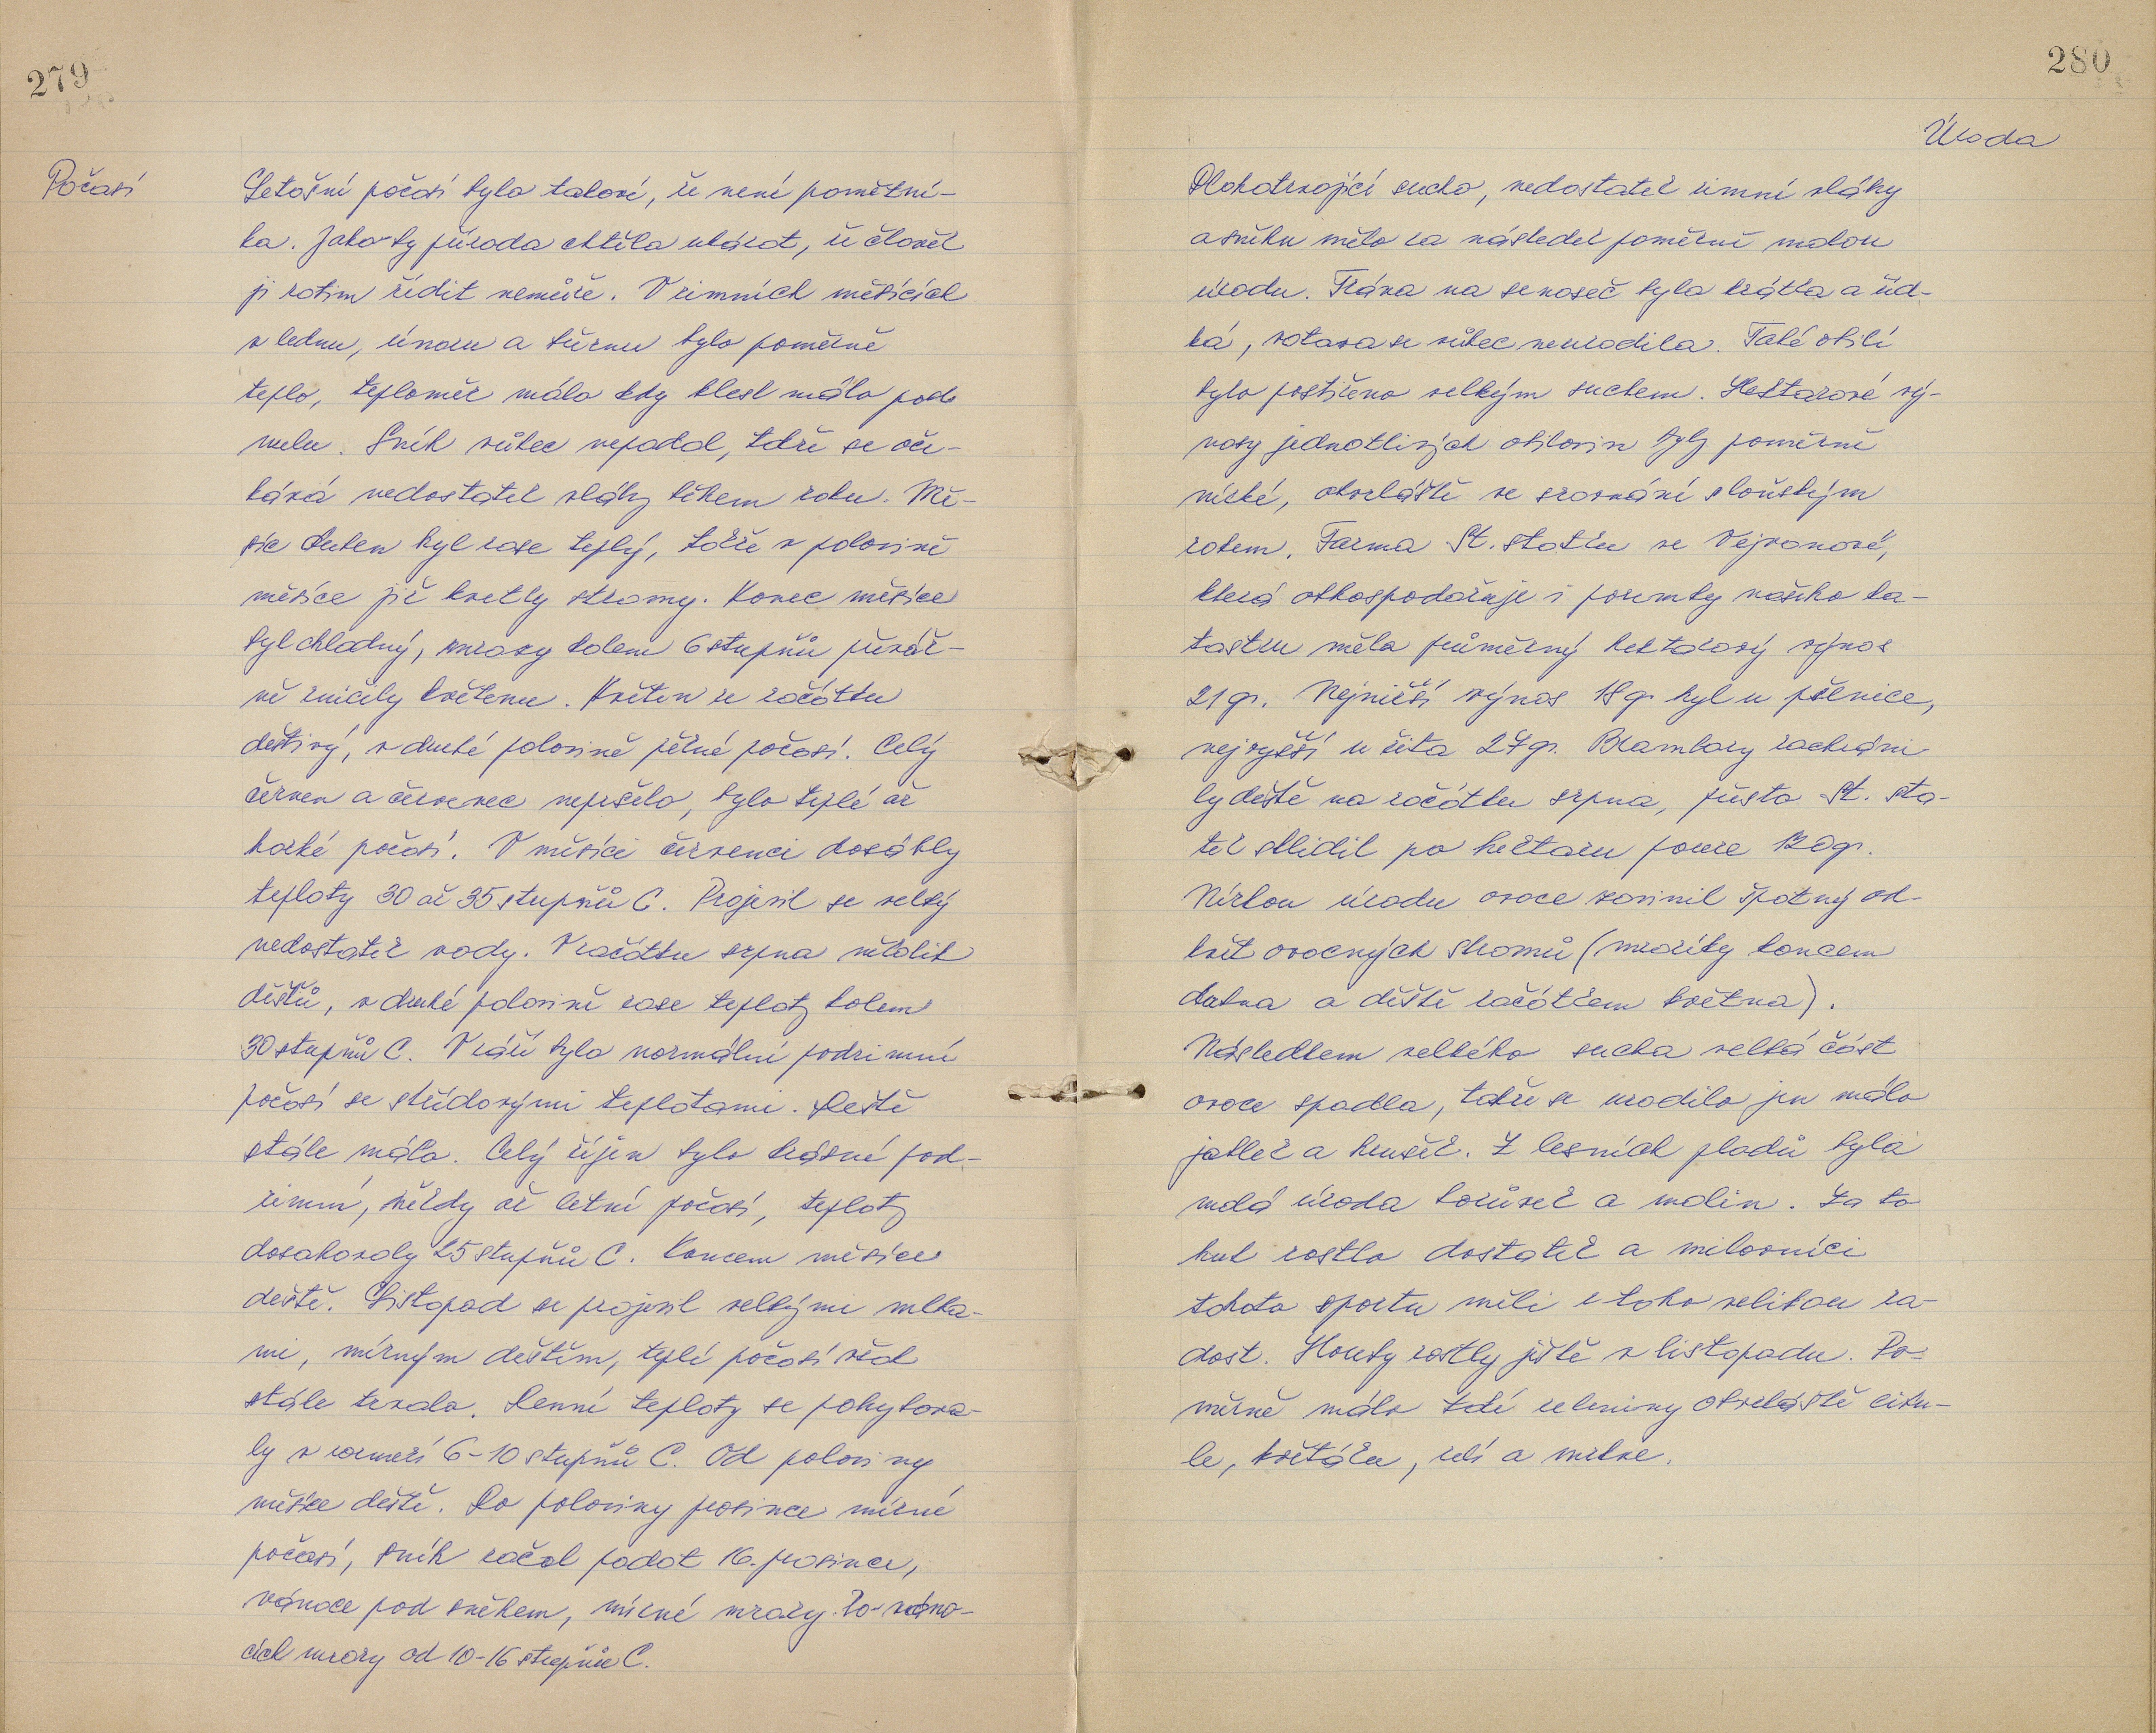 279
Počasí
Letošní počasí bylo takové, že není pamětní-
ka. Jako by příroda chtěla ukázat, že člověk
ji zatím řídit nemůže. V zimních měsících
v lednu, únoru a březnu bylo poměrně
teplo, teploměr málo kdy klesl málo pod
nulu. Sníh vůbec nepadal, takže se oče-
kává nedostatek vláhy během roku. Mě-
síc duben byl zase teplý, takže v polovině
měsíce již kvetly stromy. Konec měsíce
byl chladný, mrazy kolem 6 stupňů převáž-
ně zničily květenu. Květen ze začátku
deštivý, v druhé polovině pěkné počasí. Celý
červen a červenec nepršelo, bylo teplé až
horké počasí. V měsíci červenci dosáhly
teploty 30 až 35 stupňů C. Projevil se velký
nedostatek vody. V začátku srpna několik
dešťů, v druhé polovině zase teploty kolem
30 stupňů C. V září bylo normální podzimní
počasí se střídavými teplotami. Deště
stále málo. Celý říjen bylo krásné pod-
zimní, někdy až letní počasí, teploty
dosahovaly 25 stupňů C. Koncem měsíce
deště. Listopad se projevil velkými mlha-
mi, mírným deštěm, teplé počasí však
stále trvalo. Denní teploty se pohybova-
ly v rozmezí 6-10 stupňů C. Od poloviny
měsíce deště. Do poloviny prosince mírné
počasí, sníh začal padat 16. prosince,
vánoce pod sněhem, mírné mrazy. Po váno-
cích mrazy od 10-16 stupňů C.
280
Úroda
Dlohotrvající sucho, nedostatek zimní vláhy
a sněhu mělo za následek poměrně malou
úrodu. Tráva na senoseč byla krátká a říd-
ká, otava se vůbec neurodila. Také obilí
bylo postiženo velkým suchem. Hektarové vý-
nosy jednotlivých obilovin byly poměrně
nízké, obzvláště ve srovnání s loňským
rokem. Farma St. statku ve Vejvanově,
která obhospodařuje i pozemky našeho ka-
tastru měla průměrný hektarový výnos
21 q. Nejnižší výnos 18 q byl u pšenice,
nejvyšší u žita 27 q. Brambory zachráni-
ly deště na začátku srpna, přesto St. sta-
tek sklidil po hektaru pouze 120 q.
Nízkou úrodu ovoce zavinil špatný od-
květ ovocných stromů (mrazíky koncem
dubna a deště začátkem května).
Následkem velkého sucha velká část
ovoce spadla, takže se urodilo jen málo
jablek a hrušek. Z lesních plodů byla
malá úroda borůvek a malin. Za to
hub rostlo dostatek a milovníci
tohoto sportu měli z toho velikou ra-
dost. Houby rostly ještě v listopadu. Po-
měrně málo bylo zeleniny obzvláště cibu-
le, květáku, zelí a mrkve.